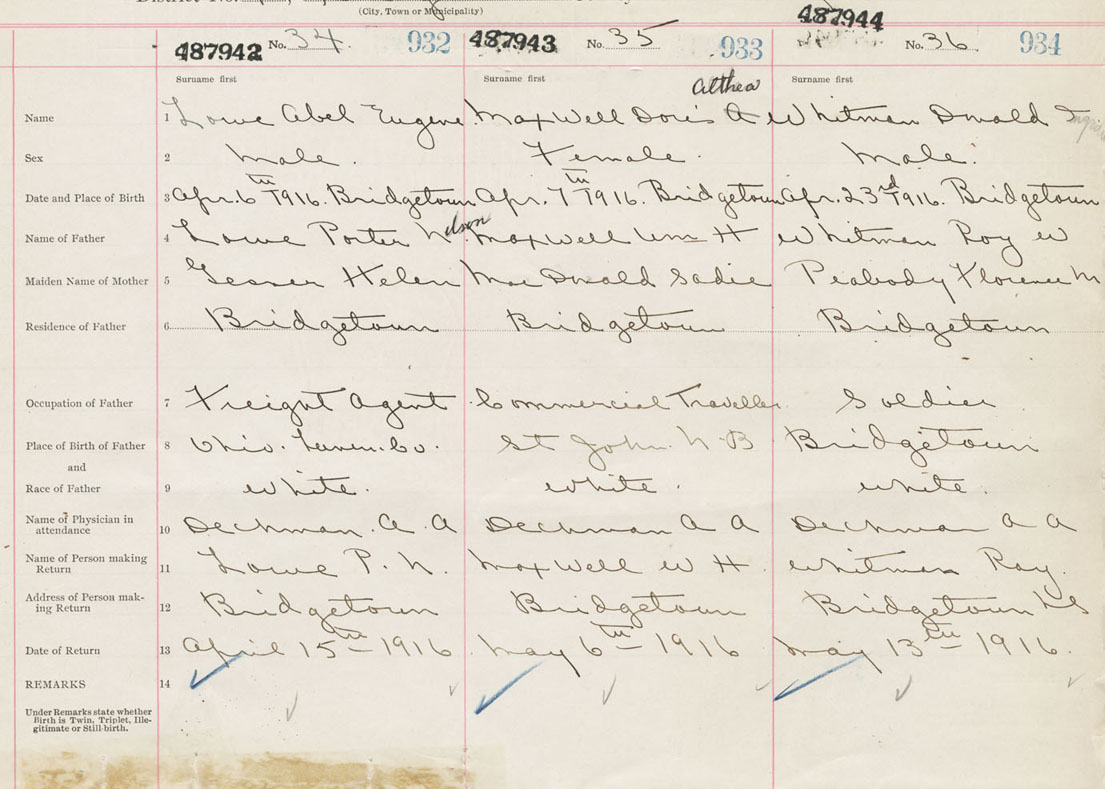 District No.
(City, Town or Municipality)
487942 No. 34 932 487943 No. 35 933 487944 No. 36 934
Surname first Surname first Surname first
Althea
Name 1 Lowe Abel Eugene Maxwell Doris A Whitman Donald
Sex 2 Male. Female. Male.
Date and Place of Birth 3 Apr. 6th 1916. Bridgetown Apr. 7th 1916. Bridgetown Apr. 23rd 1916. Bridgetown
Name of Father 4 Lowe Porter Nelson Maxwell Wm H Whitman Roy W
Maiden Name of Mother 5 Helen Mac Donald Sadie Peabody Florence M
Residence of Father 6 Bridgetown Bridgetown Bridgetown
Occupation of Father 7 Freight Agent Commercial Traveller Soldier
Place of Birth of Father 8 St John. N. B Bridgetown
and
Race of Father 9 White. White. White.
Name of Physician in
attendance 10 Deckman. A. A Deckman A A Deckman A A
Name of Person making
Return 11 Lowe P. N. Maxwell W H. Whitman Roy.
Address of Person mak-
ing Return 12 Bridgetown Bridgetown Bridgetown NS
Date of Return 13 April 15th 1916 May 6th 1916 May 13th 1916.
REMARKS 14
Under Remarks state whether
Birth is Twin, Triplet, Ille-
gitimate or Still-birth.